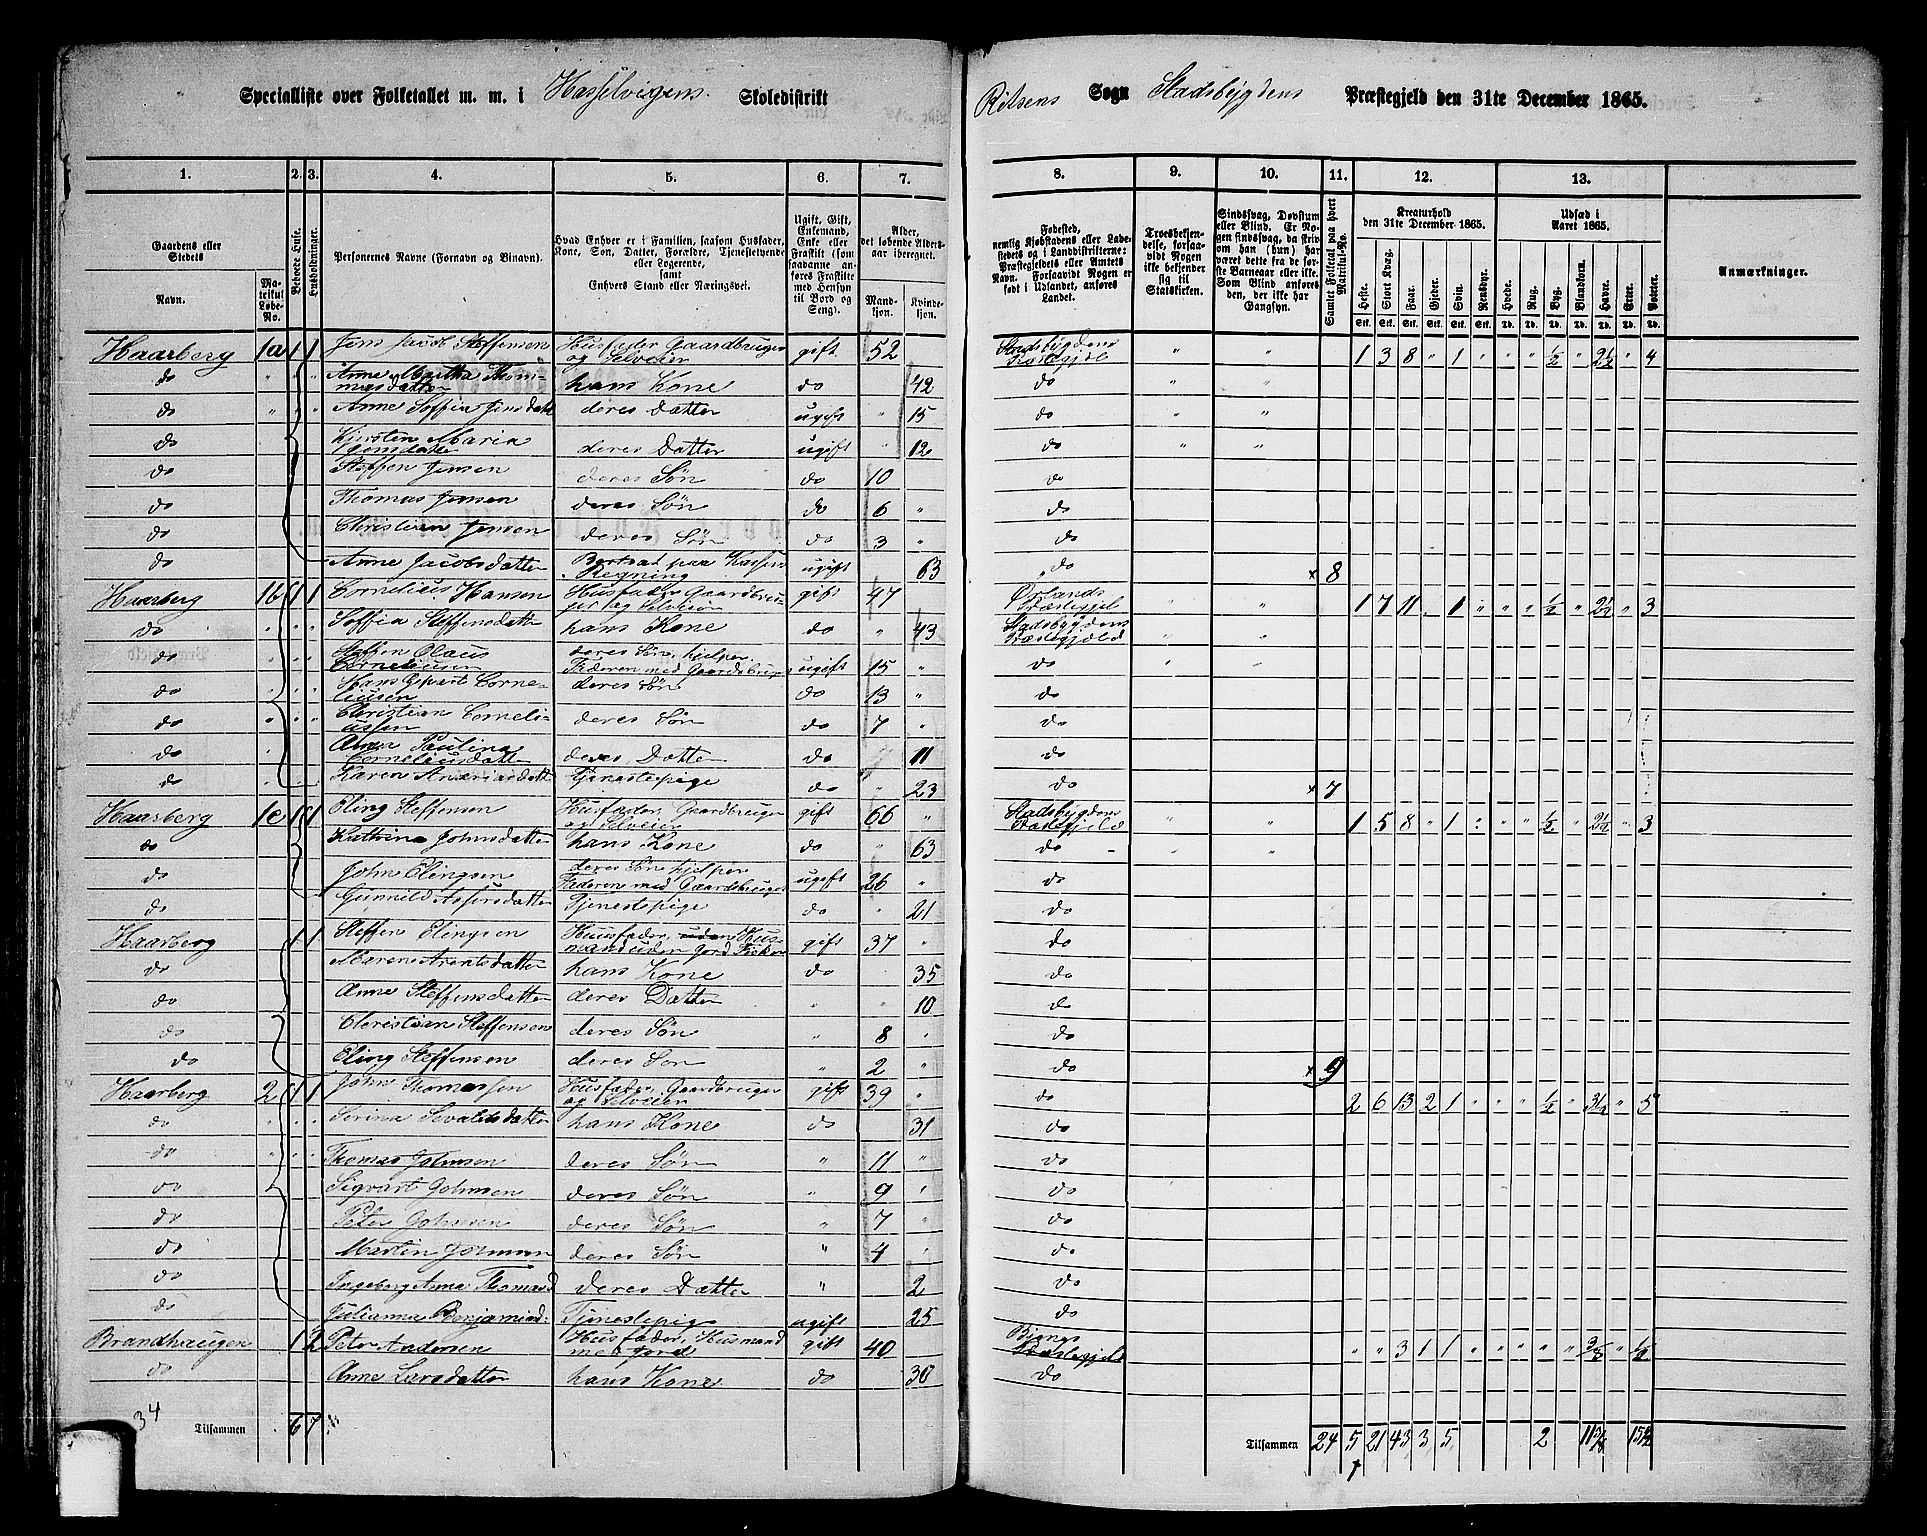 Specialliste over Folketallet m. m. i Hasselvigens Skoledistrikt
Ritsens Sogn Stadsbygdens Præstegjeld den 31te December 1865.
1. 2. 3. 4. 5. 6. 7. 8. 9. 10. 11. 12. 13.
Gaardens eller Stedets
Navn.
Matrikul Løbe-No.
Beboede Huse.
Husholdninger.
Personernes Navne (Fornavn og Binavn).
Hvad Enhver er i Familien, saasom Husfader, Kone, Søn, Datter, Forældre, Tjenestetyende eller Logerende, samt Enhvers Stand eller Næringsvei.
Ugift, Gift, Enkemand, Enke eller Fraskilt (som saadanne anføres Fraskilte med Hensyn til Bord og Seng).
Alder, det løbende Aldersaar iberegnet.
Mandkjøn. Kvindekjøn.
Fødested, nemlig Kjøbstadens eller Ladestedets og i Landdistrikterne: Præstegjeldets eller Amtets Navn. Forsaavidt Nogen er født i Udlandet, anføres Landet.
Troesbekjendelse, forsaavidt Nogen ikke bekjender sig til Statskirken.
Sindssvag, Døvstum eller Blind. Er Nogen sindssvag, da skriv om han (hun) har været dette fra de første Barneaar eller ikke. Som Blind anføres den, der ikke har Gangsyn.
Samlet Folketal paa hvert Matrikul-No.
Kreaturhold den 31te December 1865.
Heste. Stort Kvæg. Faar. Gjeder. Svin. Rensdyr.
Udsæd i Aaret 1865.
Hvede. Rug. Byg. Blandkorn. Havre. Erter. Poteter.
Anmærkninger.
Haarberg 1a 1 1 Jens Jacob Steffensen Husfader Gaardbruger og Selveier gift 52 Stadsbygdens Præstegjeld " " 1 3 8 " 1 " " " 1/2 " 2 1/2 " 4
do " " " Anne Maritha Thommasdatter hans Kone do 42 do " "
do " " " Anne Soffia Jensdatt deres Datter ugift " 15 do " "
do Kjersten Maria Jensdatter deres Datter ugift 12 do " "
do Steffen Jensen deres Søn do 10 do
do Thomas Jensen deres Søn do 6 " do
do Christian Jensen deres Søn do 3 " do
do Anne Jacobsdatter ugift 63 do × 8
Haarberg 1b 1 1 Cornelius Hansen Husfader Gaardbruger og Selveier gift 47 Ørlands Præstegjeld " " 1 7 11 " 1 " " " 1/2 " 2 1/2 " 3
do Soffia Steffensdatter hans Kone do " 43 Stadsbygdens Præstegjeld " "
do Steffen Olaus Corneliusen deres Søn, hjelper Faderen med Gaardsbruget ugift 15 " do " "
do Hans Corneliusen deres Søn do 13 " do
do Christian Corneliussen deres Søn do 7 " do
do Anna Paulina Corneliusdatt deres Datter do 11 do
do Karen Andreasdatt Tjenestepige do " 23 do × 7
Haarberg 1c 1 1 Eling Steffensen Husfader, Gaardbruger og Selveier gift 66 " Stadsbygdens Præstegjeld " " 1 5 8 " 1 " " " 1/2 " 2 1/2 " 3
do Kathrina Johnsdatter hans Kone do " 63 do " "
do John Elingsen deres Søn hjelper Faderen med Gaardsbruget ugift 26 " do
do Gunnild Tjenestepige do " 21 do
Haarberg 1 1 Steffen Elingsen Husfader, Husmand uden Jord Fisker gift 37 " do
do Maren Arentsdatter hans Kone do 35 do
do Anne Steffensdatter deres Datter " " 10 do
do Christian Steffensen deres Søn " 8 " do
do Eling Steffensen deres Søn " 2 " do × 9
Haarberg 2 1 1 John Thomassen Husfader, Gaardbruger og Selveier gift 39 " do 2 6 13 2 1 " " " 1/2 " 3 1/2 " 5
do Serina Sevaldsdatter hans Kone do 31 do
do Thomas Johnsen deres Søn " 11 " do
do Sigvart Johnsen deres Søn " 9 " do
do Peter Johnsen deres Søn " 7 " do
do Martin Johnsen deres Søn " 4 " do
do Ingeborg Anna deres Datter " 2 do
do Julianna Benjamind: Tjenestepige ugift 25 do
Brandhaugen 1 2 Peter Andersen Husfader, Husmand med Jord gift 40 Præstegjeld " " 3 1 1 " " " " " " 1/2
do Anne Larsdatter hans Kone do 30 do
34 Tilsammen 6 7
Tilsammen 24 5 21 43 3 5 2